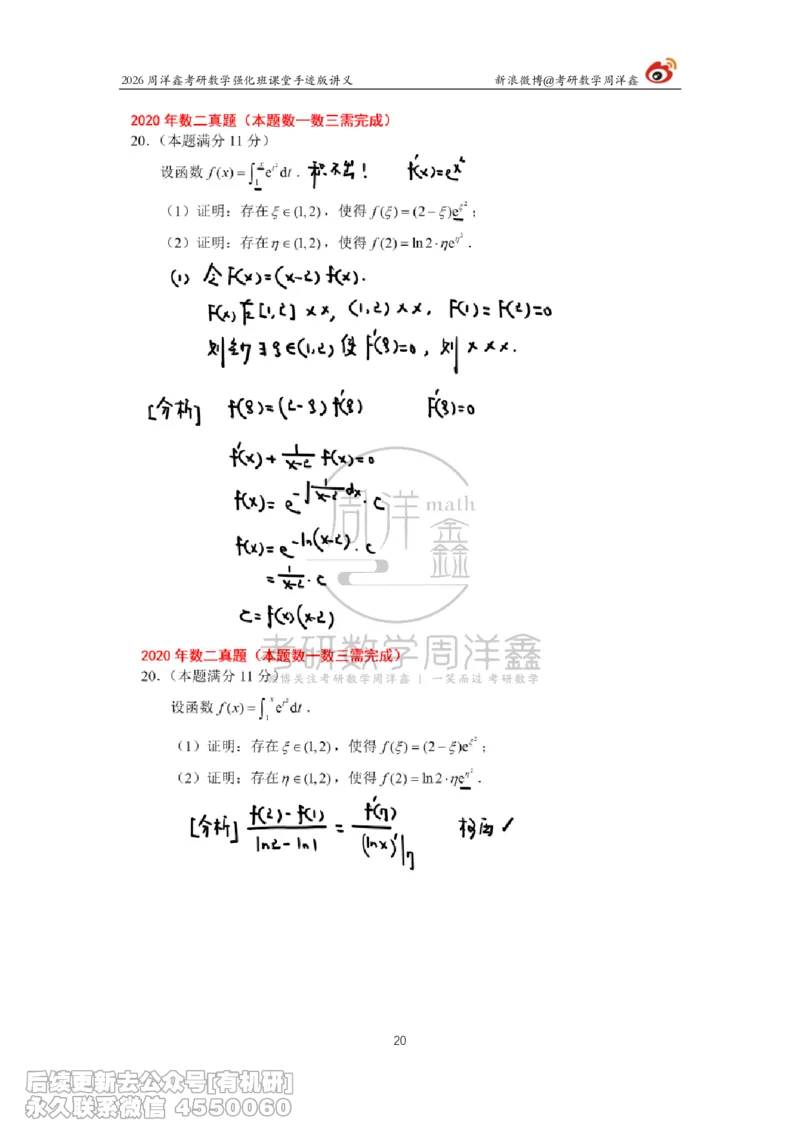 2026 周洋鑫考研数学强化班课堂手迹版讲义 新浪微博@考研数学周洋鑫
2020 年数二真题（本题数一数三需完成）
20.（本题满分 11 分）
设函数 f(x)=∫₁ˣ e^{t²}dt . 积不出！ f'(x)=e^{x²}
（1）证明：存在 ξ∈(1,2)，使得 f(ξ)=(2−ξ)e^{ξ²}；
（2）证明：存在 η∈(1,2)，使得 f(2)=ln2·ηe^{η²}．
(1) 令 F(x)=(x-2) f(x).
F(x) 在 [1,2] ××, (1,2) ××, F(1)=F(2)=0
则至少 ∃ ξ∈(1,2) 使 F'(ξ)=0, 则 ×××.
[分析] f(ξ)=(2-ξ) f'(ξ) F'(ξ)=0
f'(x)+ 1/(x-2) f(x)=0
f(x)= e^{-∫ 1/(x-2) dx}. C
f(x)= e^{-ln(x-2)}. C
= 1/(x-2) . C
C= f(x)(x-2)
周洋鑫 math
考研数学周洋鑫
微博关注考研数学周洋鑫 | 一笑而过 考研数学
2020 年数二真题（本题数一数三需完成）
20.（本题满分 11 分）
设函数 f(x)=∫₁ˣ e^{t²}dt .
（1）证明：存在 ξ∈(1,2)，使得 f(ξ)=(2−ξ)e^{ξ²}；
（2）证明：存在 η∈(1,2)，使得 f(2)=ln2·ηe^{η²}．
[分析] (f(2)-f(1))/(ln2-ln1) = f'(η)/(lnx)'|η 柯西 ✓
20
后续更新去公众号[有机研]
永久联系微信 4550060